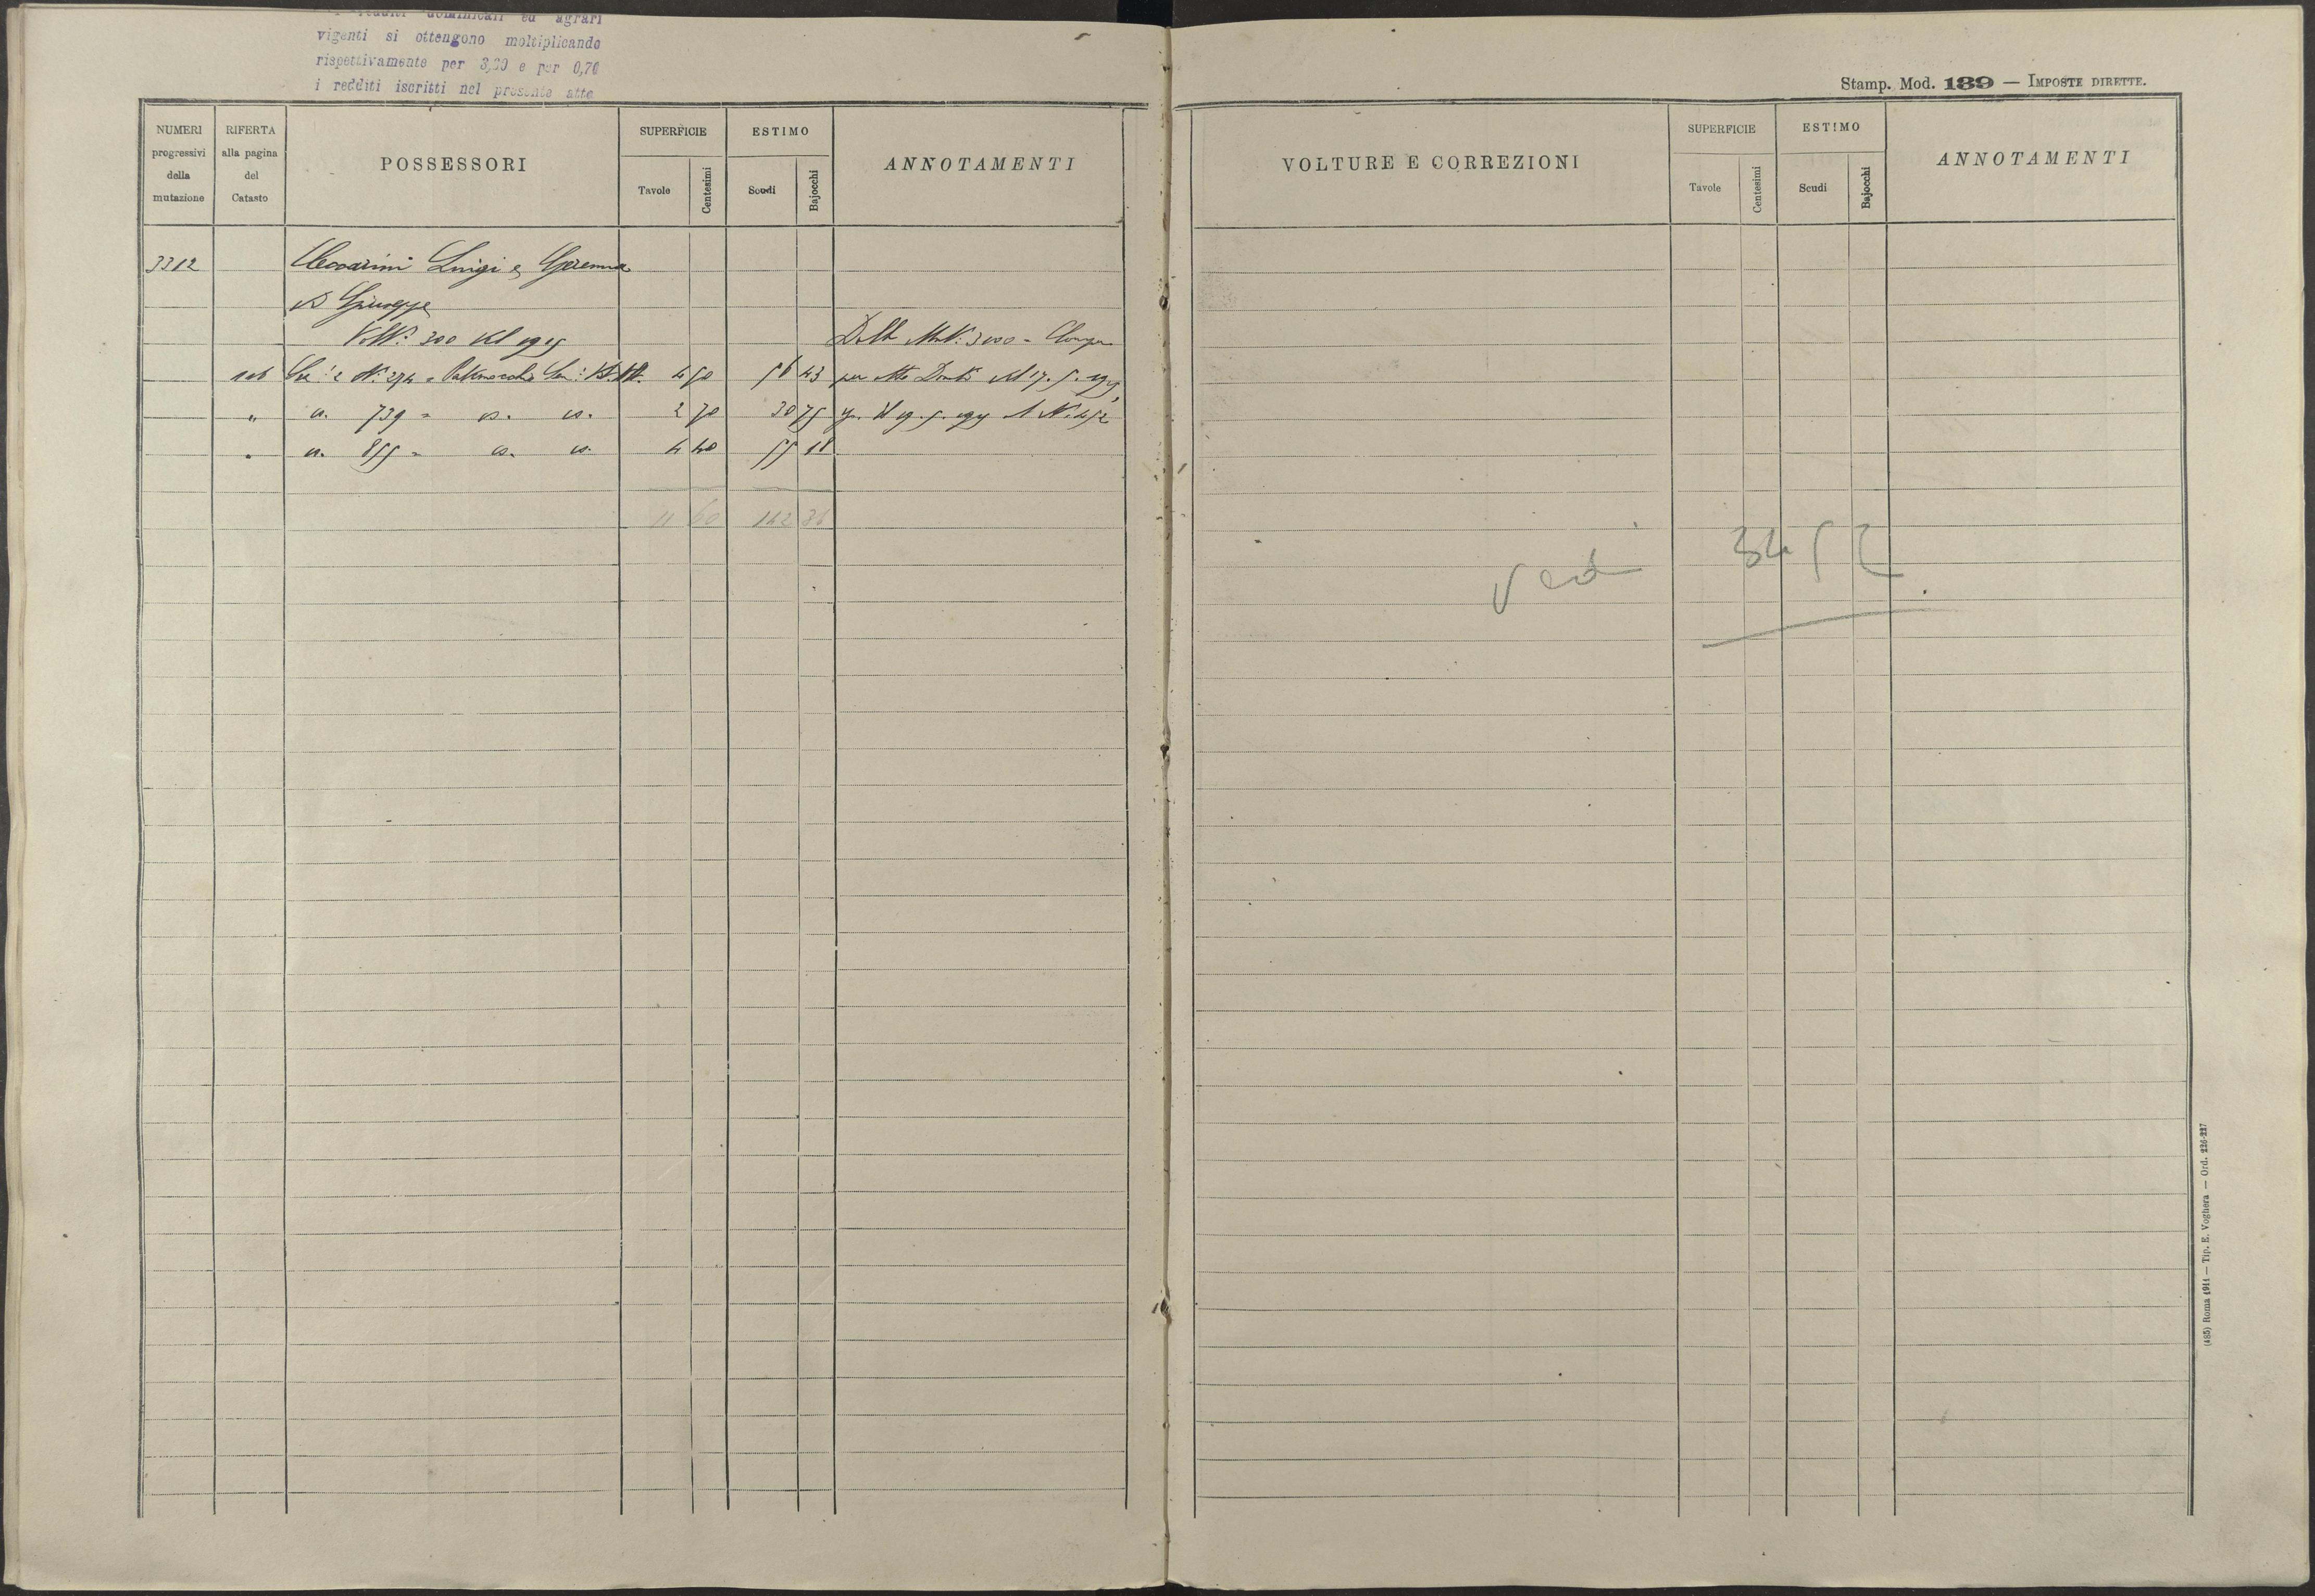 redditi dominicali ed agrari
vigenti si ottengono moltiplicando
rispettivamente per 3,20 e per 0,70
i redditi iscritti nel presente atto
NUMERI progressivi della mutazione
RIFERTA alla pagina del Catasto
POSSESSORI
SUPERFICIE
Tavole
Centesimi
ESTIMO
Scudi
Bajocchi
ANNOTAMENTI
3312 Ceccarini Luigi e Gemma
di Giuseppe
Volt. 300 del 1915 Dalla Mut. N. 3000 - Compra
Sez. 2 N. 374 4 50 56 43 per atto
" " 739 = " " 2 70 30 75
" " 855 = " " 4 40 55 18
11 60 142 36
Stamp. Mod. 139 — IMPOSTE DIRETTE.
VOLTURE E CORREZIONI
SUPERFICIE
Tavole
Centesimi
ESTIMO
Scudi
Bajocchi
ANNOTAMENTI
Vedi 3452
(485) Roma 1911 — Tip. E. Voghera — Ord. 226-227